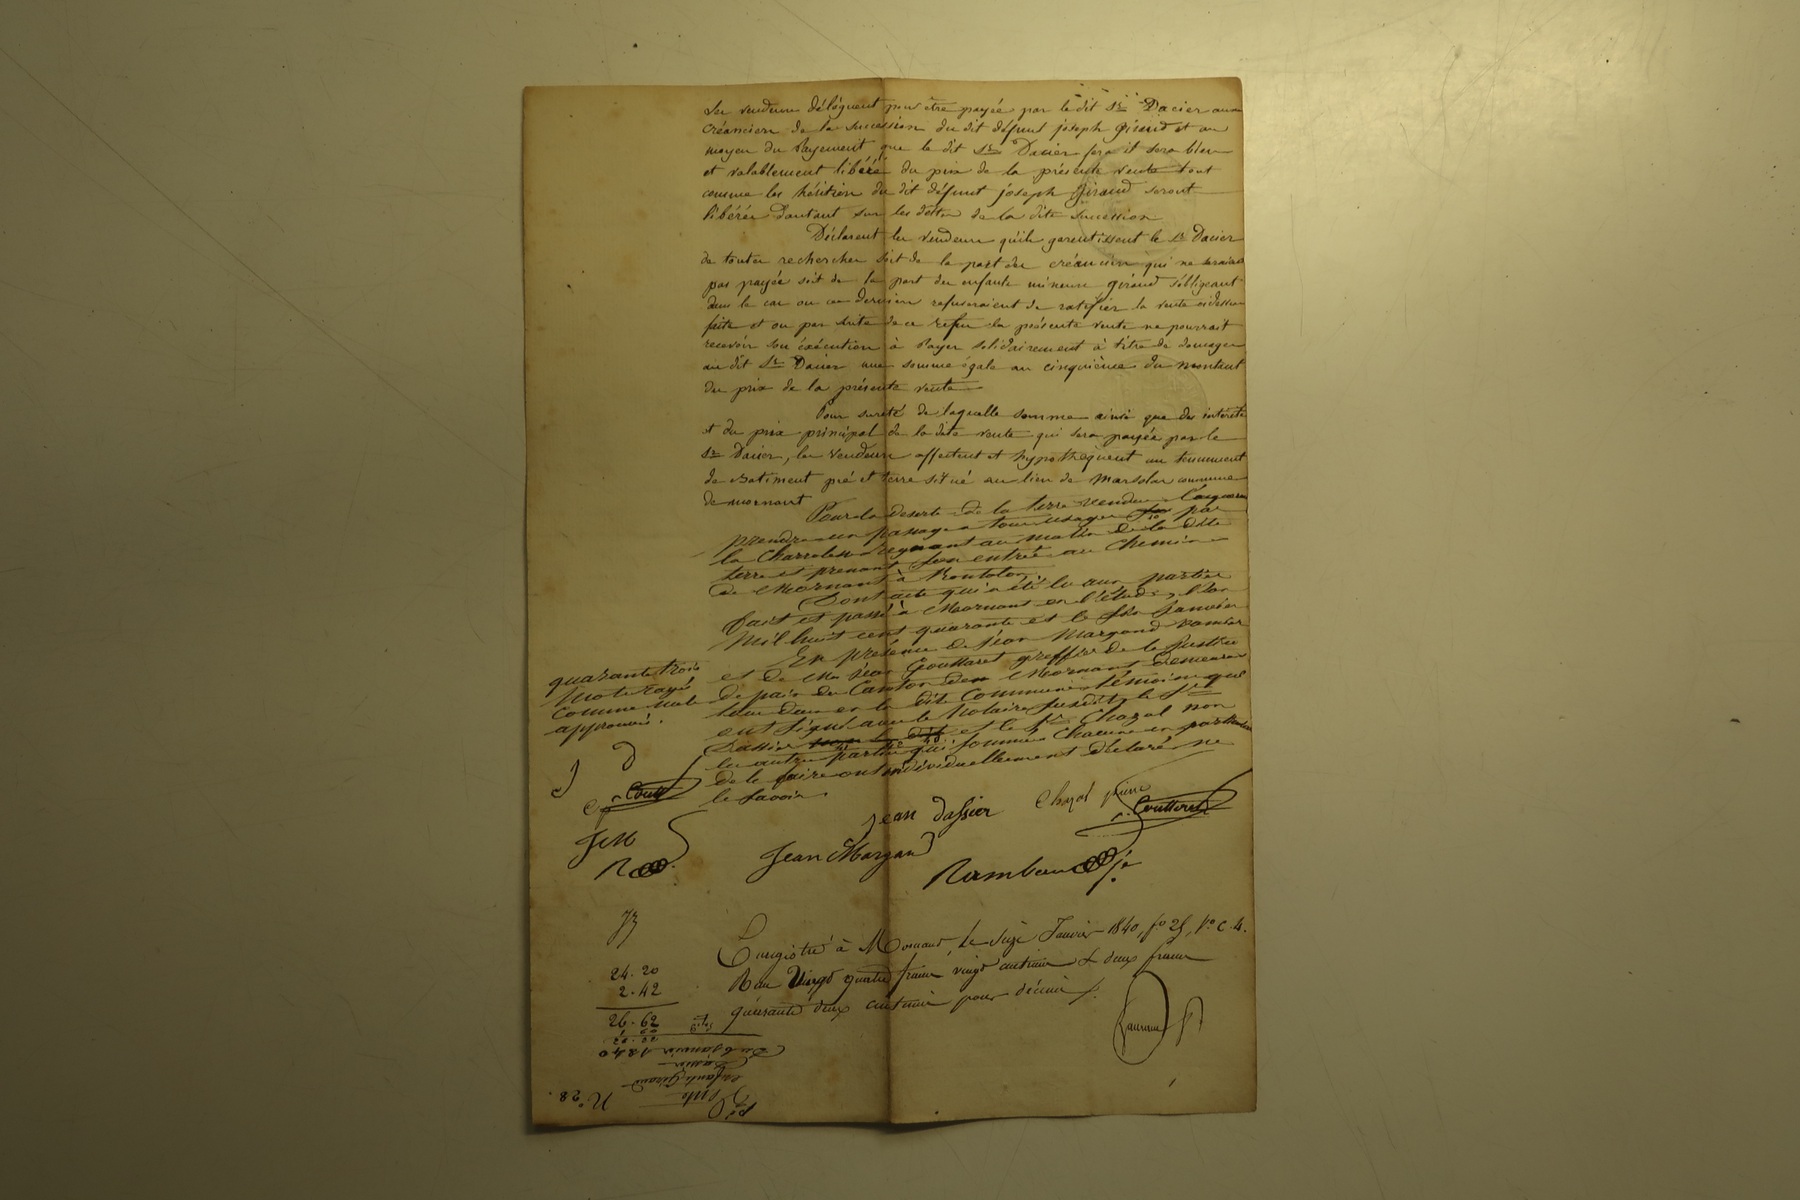 Les vendeurs délèguent pour être payée par le dit Sr Dacier aux
créanciers de la succession du dit défunt joseph giraud et au
moyen du Payement que le dit Sr Dacier fera il sera bien
et valablement libéré du prix de la présente vente tout
comme les héritiers du dit défunt joseph Giraud seront
libérés d'autant sur les dettes de la dite succession
Déclarent les vendeurs qu'ils garentissent le Sr Dacier
de toutes recherches soit de la part des créanciers qui ne seraient
pas payés soit de la part des enfants mineurs giraud s'obligeant
dans le cas ou ces derniers refuseraient de ratifier la vente cidessus
faite et ou par suite de ce refus la présente vente ne pourrait
recevoir son éxécution à Payer solidairement à titre de domages
au dit Sr Dacier une somme égale au cinquième du montant
du prix de la présente vente
Pour sureté de laquelle somme ainsi que des intérêts
et du prix principal de la dite vente qui sera payée par le
Sr Dacier, les vendeurs affectent et hypothèquent un tenement
de Batiment pré et terre situé au lieu de Marsolas commune
de mornant
Pour la deserte de la terre vendue l'acquereur
prendra un passage a tous usages par
la Charrolen regnant au matin de la dite
terre et prenant son entrée au Chemin
de Mornant à Rontalon.
Dont acte qui a été lu aux parties
fait et passé à Mornant en l'étude, l'an
Mil huit cent quarante et le six Janvier
En présence de Jean Margand
et de Me Jean Goutteret greffier de la Justice
de paix du Canton de Mornant demeurant
tous deux en la dite Commune témoins que
ont signé avec le Notaire susdit le Sr
Dassier et le Sr Chazal non
les autres parties qui sommés chacune en particulier
de le faire ont individuellement déclaré ne
le savoir.
quarante trois
Mots rayés
comme nuls
approuvés.
J D
Goutt
JM
R
Jean Dassier
Chazal
Goutteret
Jean Margand
Rambaud
Enregistré à Mornant, le Seize Janvier 1840, fo 25, Vo C. 4.
Reçu Vingt quatre francs vingt centimes & deux francs
quarante deux centimes pour décime
24.20
2.42
26.62
Du 6 janvier 1840
Dassier
enfants Giraud
Vente
No 28.